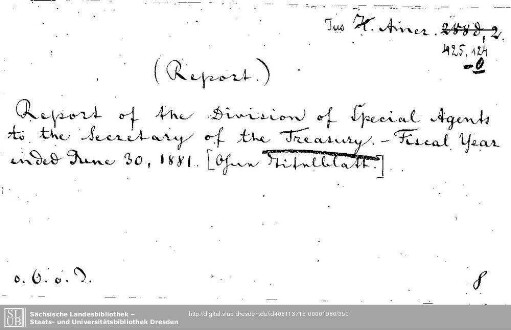 H. Amer. 2.
425, 124
(Report.)
Report of the Division of Special Agents
to the Secretary of the Treasury. – Fiscal Year
ended June 30, 1881. [Ohne Titelblatt.]
o. O. o. J. 8
Sächsische Landesbibliothek –
Staats- und Universitätsbibliothek Dresden